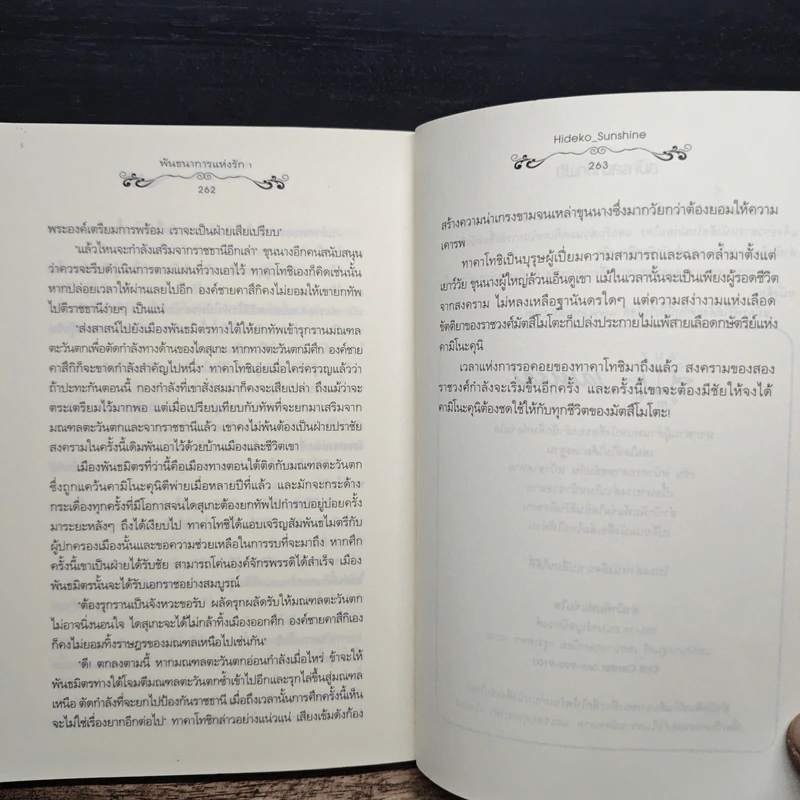 พันธนาการแห่งรัก 1
262
พระองค์เตรียมการพร้อม เราจะเป็นฝ่ายเสียเปรียบ"
"แล้วไหนจะกำลังเสริมจากราชธานีอีกเล่า" ขุนนางอีกคนสนับสนุน
ว่าควรจะรีบดำเนินการตามแผนที่วางเอาไว้ ทาคาโทชิเองก็คิดเช่นนั้น
หากปล่อยเวลาให้ผ่านเลยไปอีก องค์ชายคาสึกิคงไม่ยอมให้เขายกทัพ
ไปตีราชธานีง่ายๆ เป็นแน่
"ส่งสาสน์ไปยังเมืองพันธมิตรทางใต้ให้ยกทัพเข้ารุกรานมณฑล
ตะวันตกเพื่อตัดกำลังทางด้านของไดสุเกะ หากทางตะวันตกมีศึก องค์ชาย
คาสึกิก็จะขาดกำลังสำคัญไปหนึ่ง" ทาคาโทชิเอ่ยเมื่อใคร่ครวญแล้วว่า
ถ้าปะทะกันตอนนี้ กองกำลังที่เขาสั่งสมมาก็คงจะเสียเปล่า ถึงแม้ว่าจะ
ตระเตรียมไว้มากพอ แต่เมื่อเปรียบเทียบกับทัพที่จะยกมาเสริมจาก
มณฑลตะวันตกและจากราชธานีแล้ว เขาคงไม่พ้นต้องเป็นฝ่ายปราชัย
สงครามในครั้งนี้เดิมพันเอาไว้ด้วยบ้านเมืองและชีวิตเขา
เมืองพันธมิตรที่ว่านี้คือเมืองทางตอนใต้ติดกับมณฑลตะวันตก
ซึ่งถูกแคว้นคามิโนะคุนิตีพ่ายเมื่อหลายปีที่แล้ว และมักจะกระด้าง
กระเดื่องทุกครั้งที่มีโอกาสจนไดสุเกะต้องยกทัพไปกำราบอยู่บ่อยครั้ง
มาระยะหลังๆ ถึงได้เงียบไป ทาคาโทชิได้แอบเจริญสัมพันธไมตรีกับ
ผู้ปกครองเมืองนั้นและขอความช่วยเหลือในการรบที่จะมาถึง หากศึก
ครั้งนี้เขาเป็นฝ่ายได้รับชัย สามารถโค่นองค์จักรพรรดิได้สำเร็จ เมือง
พันธมิตรนั้นจะได้รับเอกราชอย่างสมบูรณ์
"ต้องรุกรานเป็นจังหวะขอรับ ผลัดรุกผลัดรับให้มณฑลตะวันตก
ไม่อาจนิ่งนอนใจ ไดสุเกะจะได้ไม่กล้าทิ้งเมืองออกศึก องค์ชายคาสึกิเอง
ก็คงไม่ยอมทิ้งราษฎรของมณฑลเหนือไปเช่นกัน"
"ดี! ตกลงตามนี้ หากมณฑลตะวันตกอ่อนกำลังเมื่อไหร่ ข้าจะให้
พันธมิตรทางใต้โจมตีมณฑลตะวันตกซ้ำเข้าไปอีกและรุกไล่ขึ้นสู่มณฑล
เหนือ ตัดกำลังที่จะยกไปป้องกันราชธานี เมื่อถึงเวลานั้นการศึกครั้งนี้เห็น
จะไม่ใช่เรื่องยากอีกต่อไป" ทาคาโทชิกล่าวอย่างแน่วแน่ เสียงเข้มดังก้อง
Hideko_Sunshine
263
สร้างความน่าเกรงขามจนเหล่าขุนนางซึ่งมากวัยกว่าต้องยอมให้ความ
เคารพ
ทาคาโทชิเป็นบุรุษผู้เปี่ยมความสามารถและฉลาดล้ำมาตั้งแต่
เยาว์วัย ขุนนางผู้ใหญ่ล้วนเอ็นดูเขา แม้ในเวลานั้นจะเป็นเพียงผู้รอดชีวิต
จากสงคราม ไม่หลงเหลือฐานันดรใดๆ แต่ความสง่างามแห่งเลือด
ขัตติยาของราชวงศ์มัตสึโมโตะก็เปล่งประกายไม่แพ้สายเลือดกษัตริย์แห่ง
คามิโนะคุนิ
เวลาแห่งการรอคอยของทาคาโทชิมาถึงแล้ว สงครามของสอง
ราชวงศ์กำลังจะเริ่มขึ้นอีกครั้ง และครั้งนี้เขาจะต้องมีชัยให้จงได้
คามิโนะคุนิต้องชดใช้ให้กับทุกชีวิตของมัตสึโมโตะ!